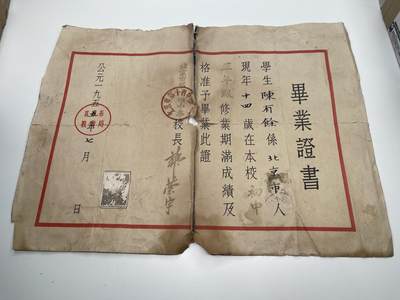 畢業證書
學生陳有餘係北京市人
現年十四歲在本校初中
三年級修業期滿成績及
格准予畢業此證
校長
公元一九五五年七月 日